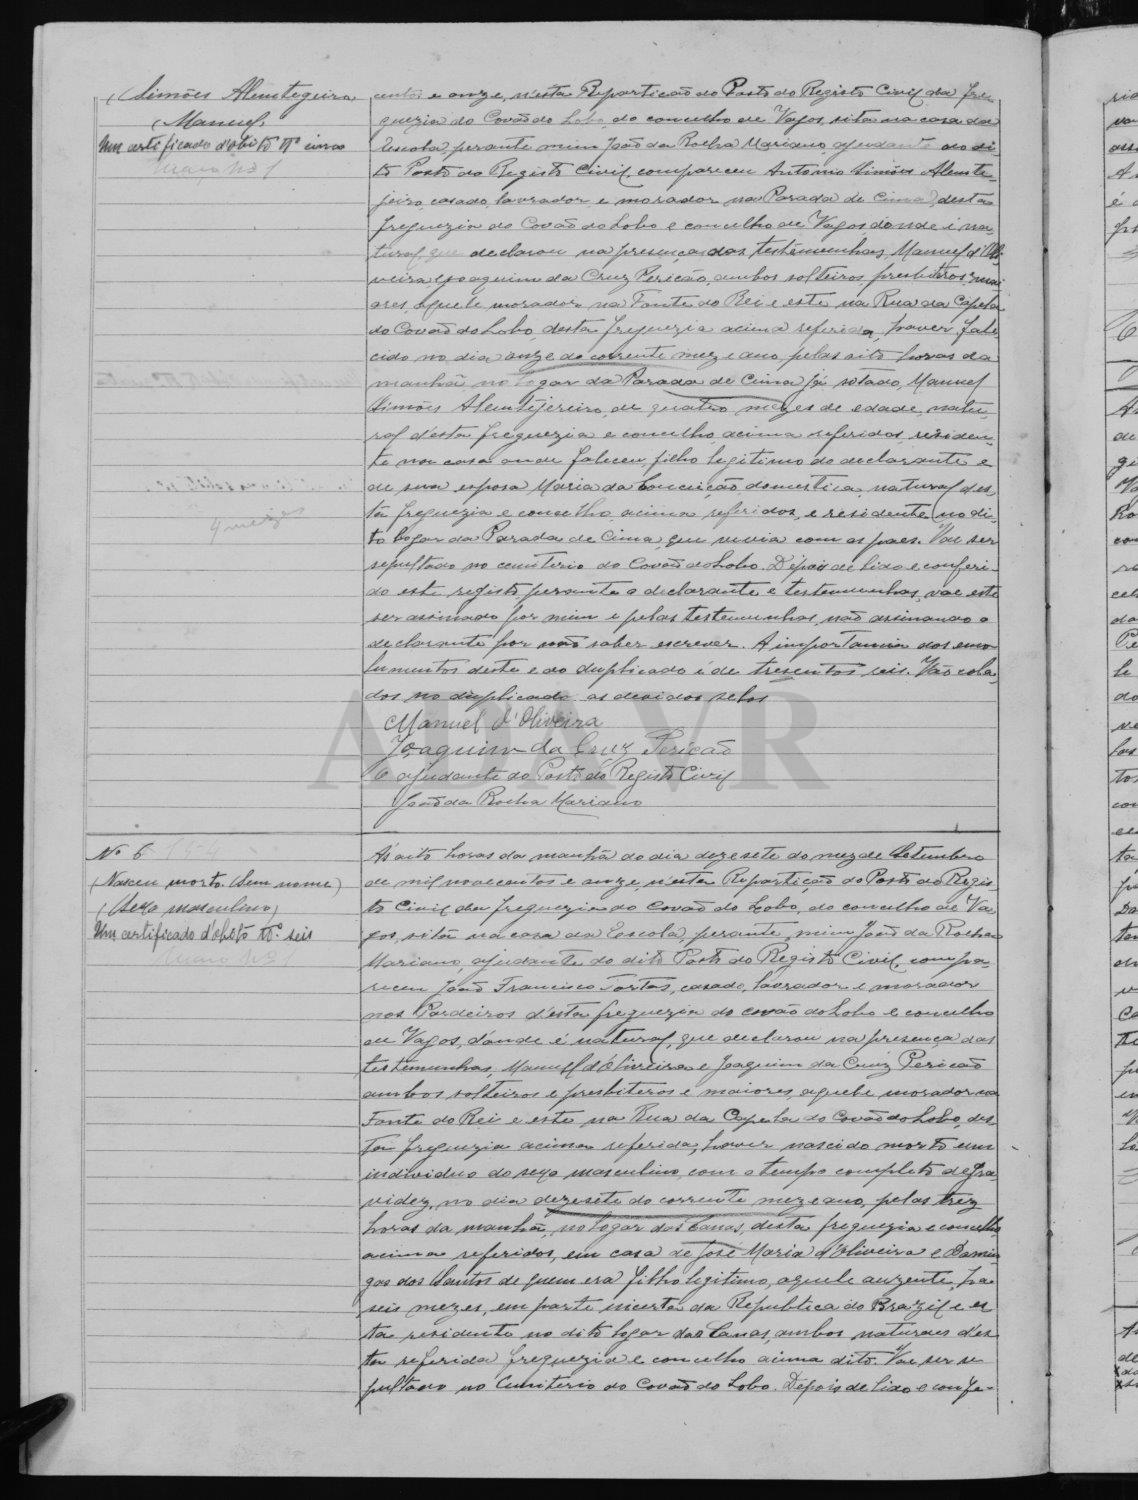 (Simões Alemtegeira
(Manuel)
Um certificado d'obito Nº cinco
Março Nº 1
4 mezes
centos e onze, n'esta Repartição do Posto do Registo Civil da fre-
guezia do Covão do Lobo, do concelho de Vagos, sita na casa da
Escola perante mim João da Rocha Mariano ajudante do di-
to Posto do Registo Civil, compareceu Antonio Simões Alemte-
jeiro, casado, lavrador e morador na Parada de Cima, desta
freguezia do Covão do Lobo e concelho de Vagos, donde é na-
tural que declarou na presença das testemunhas, Manuel d'Oli-
veira e Joaquim da Cruz Pericão, ambos solteiros, presbiteros, mai-
ores, aquele morador na Fonte do Rei e este na Rua da Capela
do Covão do Lobo, desta freguezia acima referida, haver fale-
cido no dia onze do corrente mez e ano, pelas oito horas da
manhã no logar da Parada de Cima já sotado, Manuel
Simões Alemtejereiro, de quatro mezes de edade, natu-
ral d'esta freguezia e concelho, acima referidos, residen-
te na casa onde faleceu, filho legitimo do declarante e
de sua esposa Maria da Conceição, domestica, natural des-
ta freguezia e concelho, acima referidos, e residente no di-
to logar da Parada de Cima, que vivia com os paes. Vae ser
sepultado no cemiterio do Covão do Lobo. Depois de lido e conferi-
do este registo perante o declarante e testemunhas, vae este
ser assinado por mim e pelas testemunhas, não assinando o
declarante por não saber escrever. A importancia dos emo-
lumentos deste e do duplicado é de trescentos reis. Vão cola-
dos no duplicado os devidos selos
Manuel d'Oliveira
Joaquim da Cruz Pericão
O ajudante do Posto do Registo Civil
João da Rocha Mariano
ADAVR
Nº 6
(Nasceu morto. Sem nome)
(Sexo masculino)
Um certificado d'obito Nº seis
Março Nº 1
Ás oito horas da manhã do dia dezesete do mez de Setembro
de mil novecentos e onze, n'esta Repartição do Posto do Regis-
to Civil da freguezia do Covão do Lobo, do concelho de Va-
gos, sita na casa da Escola, perante mim João da Rocha
Mariano, ajudante do dito Posto do Registo Civil, compa-
receu João Francisco Tortas, casado, lavrador e morador
nos Pardeiros d'esta freguezia do Covão do Lobo e concelho
de Vagos, donde é natural, que declarou na presença das
testemunhas, Manuel d'Oliveira e Joaquim da Cruz Pericão
ambos solteiros e presbiteros e maiores, aquele morador na
Fonte do Rei e este na Rua da Capela do Covão do Lobo, des-
ta freguezia acima referida, haver nascido morto um
individuo do sexo masculino, com o tempo completo de gra-
videz, no dia dezesete do corrente mez e ano, pelas trez
horas da manhã, no logar das Canas, desta freguezia e concelho,
acima referidos, em casa de José Maria d'Oliveira e Domin-
gas dos Santos de quem era filho legitimo, aquele auzente, ha
seis mezes, em parte incerta da Republica do Brazil e es-
ta residente no dito logar das Canas, ambos naturaes d'es-
ta referida freguezia e concelho acima dito. Vae ser se-
pultado no Cemiterio do Covão do Lobo. Depois de lido e confe-